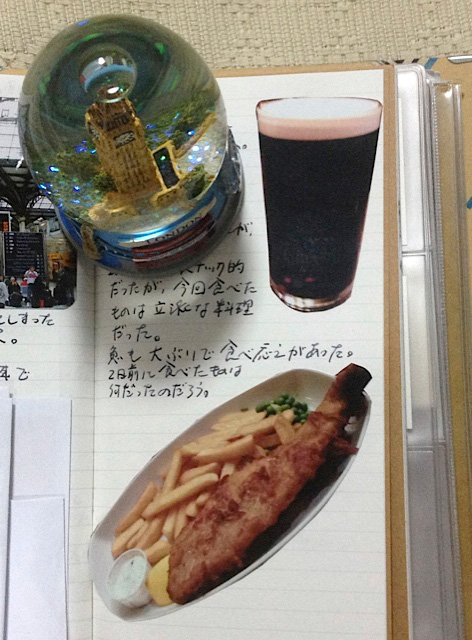 LONDON
が、
ナック的
だったが、今回食べた
ものは立派な料理
だった。
魚も大ぶりで食べ応えがあった。
2日前に食べたものは
何だったのだろう。
としまった
で